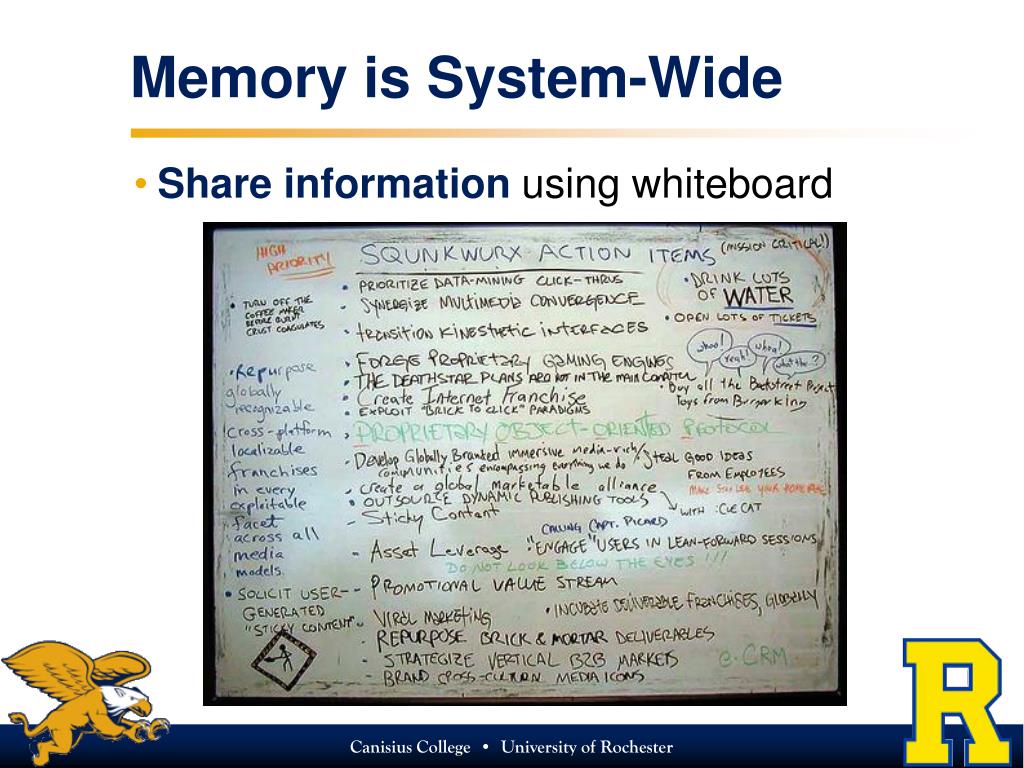 Memory is System-Wide
• Share information using whiteboard
HIGH PRIORITY
SQUNKWURX ACTION ITEMS
(MISSION CRITICAL!)
• TURN OFF THE
COFFEE MAKER
BEFORE BURNT
CRUST COAGULATES
• PRIORITIZE DATA-MINING CLICK-THRUS
- SYNERGIZE MULTIMEDIA CONVERGENCE
• TRANSITION KINESTHETIC INTERFACES
• FORGE PROPRIETARY GAMING ENGINES
• THE DEATHSTAR PLANS ARE NOT IN THE MAIN COMPUTER
• Create Internet Franchise
• EXPLOIT "BRICK TO CLICK" PARADIGMS
• PROPRIETARY OBJECT-ORIENTED PROTOCOL
- Develop Globally Branded immersive media-rich
communities encompassing everything we do
- create a global marketable alliance
• OUTSOURCE DYNAMIC PUBLISHING TOOLS
WITH :CUECAT
- Sticky Content
CALLING CAPT. PICARD
- Asset Leverage
• "ENGAGE" USERS IN LEAN-FORWARD SESSIONS
DO NOT LOOK BELOW THE EYES !!!
- PROMOTIONAL VALUE STREAM
- VIRAL MARKETING
• INCUBATE DELIVERABLE FRANCHISES, GLOBALLY
- REPURPOSE BRICK & MORTAR DELIVERABLES
- STRATEGIZE VERTICAL B2B MARKETS
e-CRM
- BRAND CROSS-CULTURN MEDIA ICONS
• DRINK LOTS
OF WATER
• OPEN LOTS OF TICKETS
whoo!
yeah!
whoa!
what the..?
• Buy all the Backstreet Project
Toys from Burger King
STEAL GOOD IDEAS
FROM EMPLOYEES
• Repurpose
globally
recognizable
cross-platform
localizable
franchises
in every
exploitable
facet
across all
media
models.
• SOLICIT USER-
GENERATED
"STICKY CONTENT"
Canisius College • University of Rochester
R